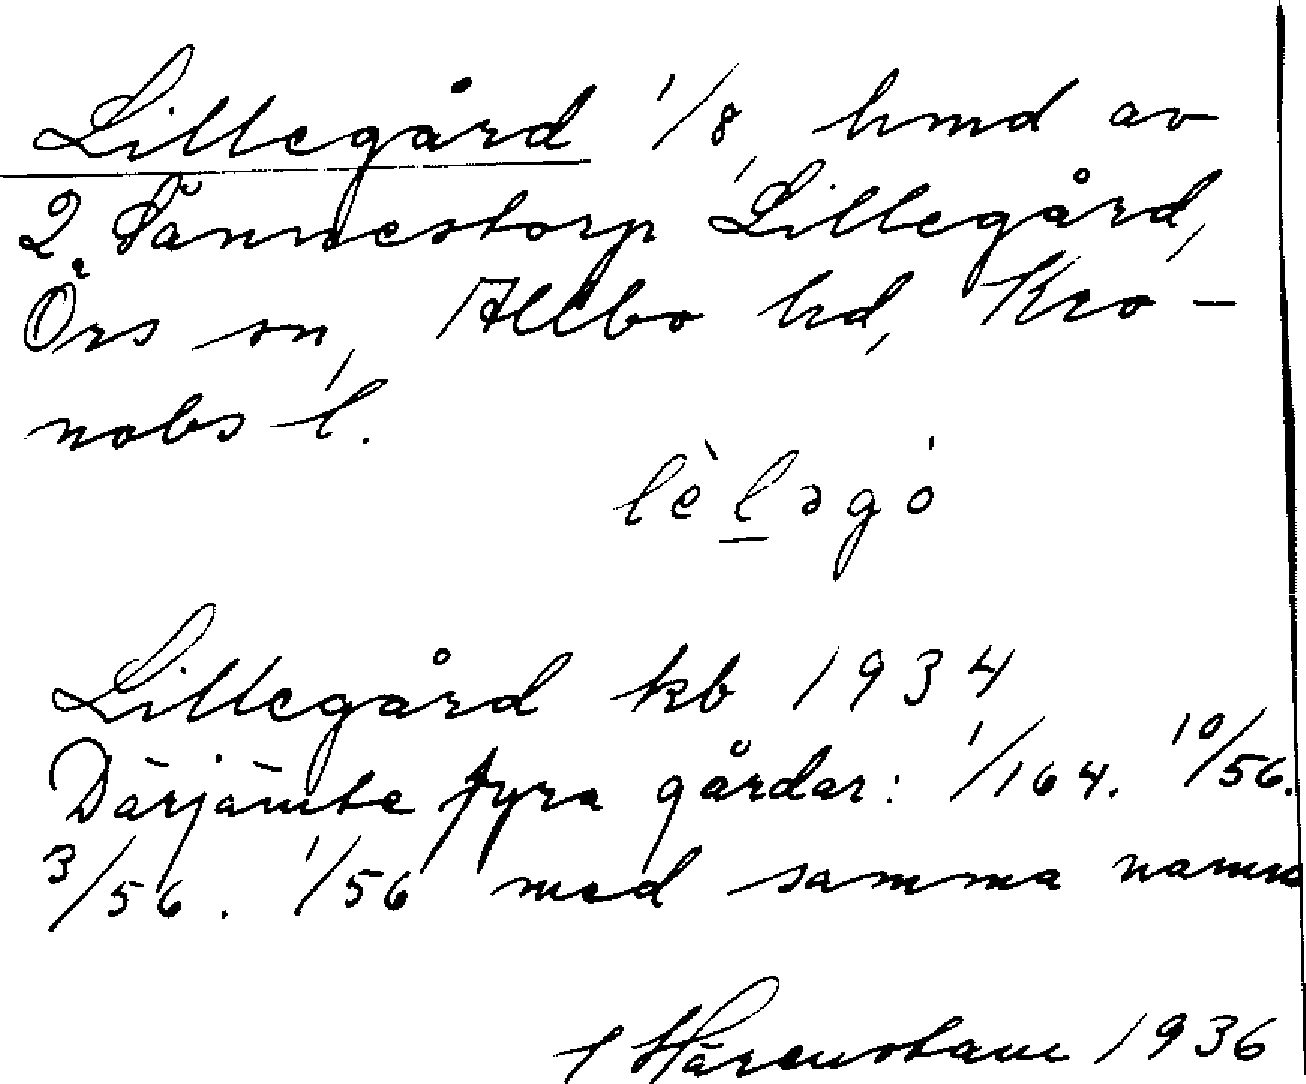 Lillegård 1/8, hmd av
2 Tännestorp Lillegård,
Örs sn, Allbo hd, Kro-
nobs l.
lèl̲əgó
Lillegård kb 1934
Därjämte fyra gårdar: 1/164. 10/56.
3/56. 1/56 med samma namn
1936